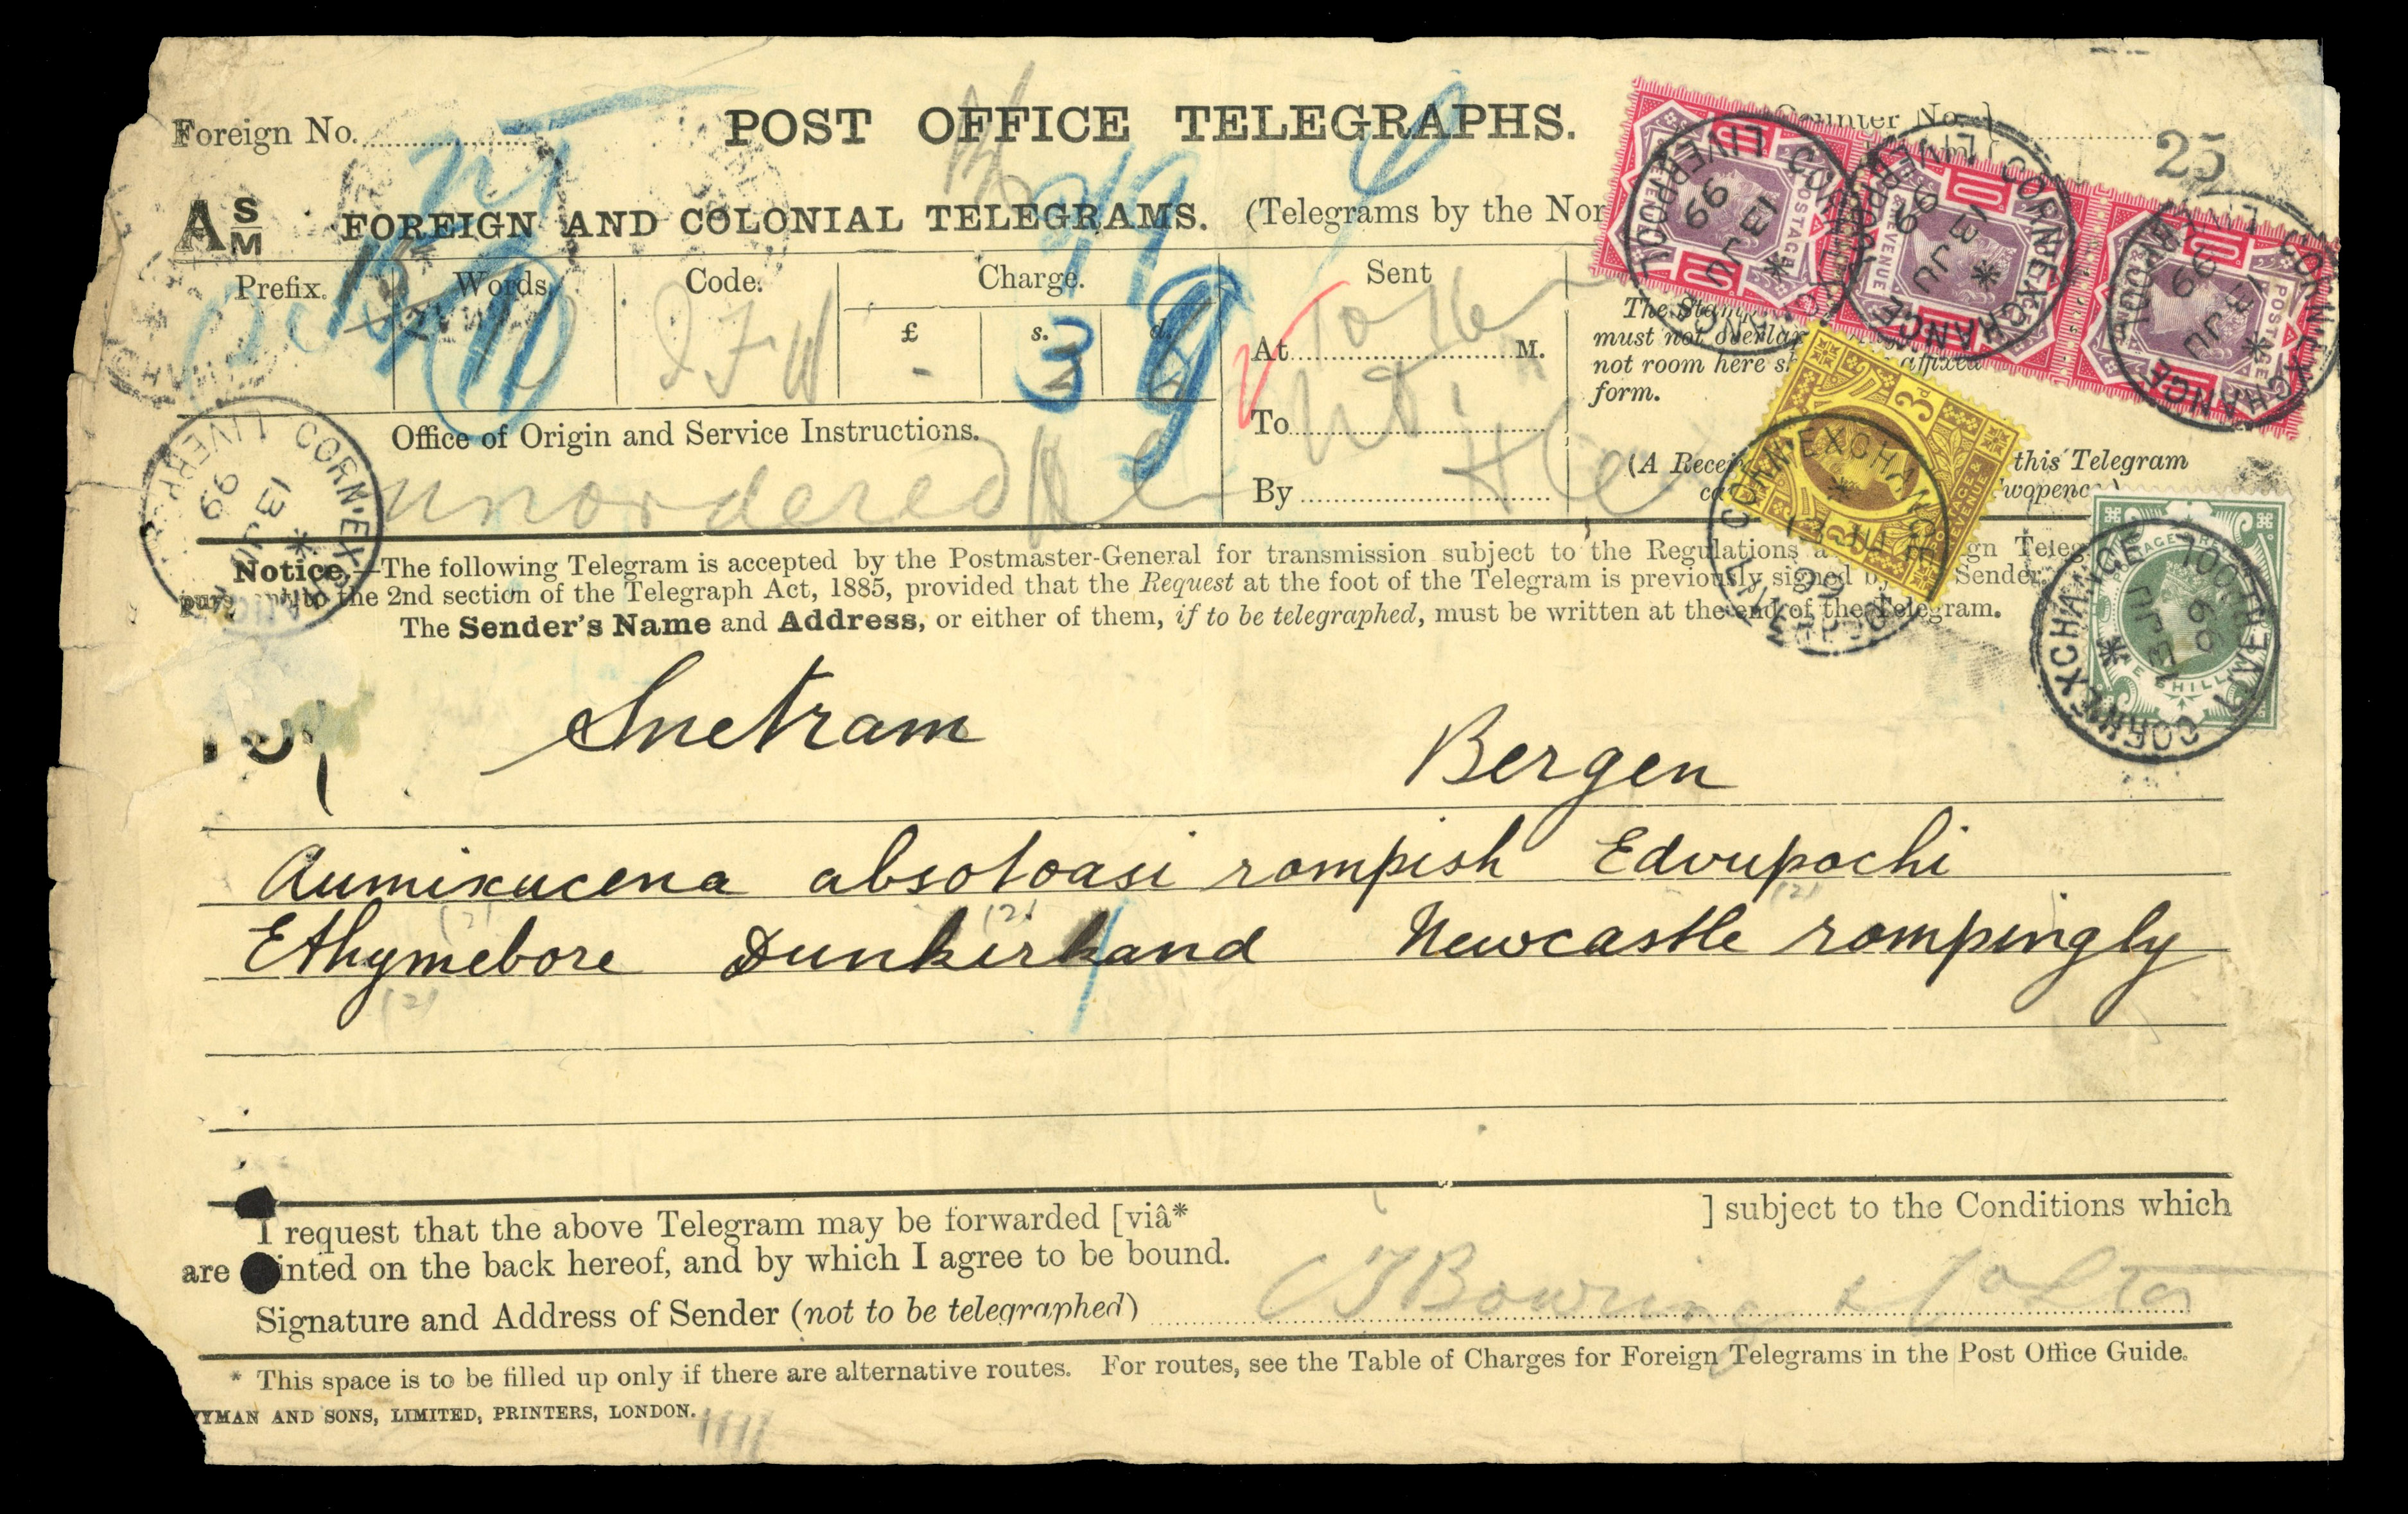 Foreign No.
POST OFFICE TELEGRAPHS.
Counter No.
25
A S M
FOREIGN AND COLONIAL TELEGRAMS.
(Telegrams by the Nor
3/9
Prefix.
Words
Code.
Charge.
Sent
£
s.
d.
3 9
At M.
To
By
Office of Origin and Service Instructions.
unordered
The Stamp
must not overlap
not room here s affixed
form.
(A Recei this Telegram
ca wopence)
CORN EXCHANGE LIVERPOOL
13 JU 99
CORN EXCHANGE LIVERPOOL
13 JU 99
CORN EXCHANGE LIVERPOOL
13 JU 99
CORN EXCHANGE LIVERPOOL
13 JU 99
CORN EXCHANGE LIVERPOOL
13 JU 99
CORN EXCHANGE LIVERP
13 JU 99
POSTAGE & REVENUE
ONE SHILLING
Notice.—The following Telegram is accepted by the Postmaster-General for transmission subject to the Regulations gn Teleg
pursuant to the 2nd section of the Telegraph Act, 1885, provided that the Request at the foot of the Telegram is previously signed by Sender.
The Sender's Name and Address, or either of them, if to be telegraphed, must be written at the end of the Telegram.
Snetram Bergen
Aumixucena absoloasi rompish Edvupochi
(2) (2) (2)
Ethymebore Dunkirk and Newcastle rompingly
(2)
I request that the above Telegram may be forwarded [viâ* ] subject to the Conditions which
are inted on the back hereof, and by which I agree to be bound.
Signature and Address of Sender (not to be telegraphed) CT Bowring & Co Ltd
* This space is to be filled up only if there are alternative routes. For routes, see the Table of Charges for Foreign Telegrams in the Post Office Guide.
WYMAN AND SONS, LIMITED, PRINTERS, LONDON.